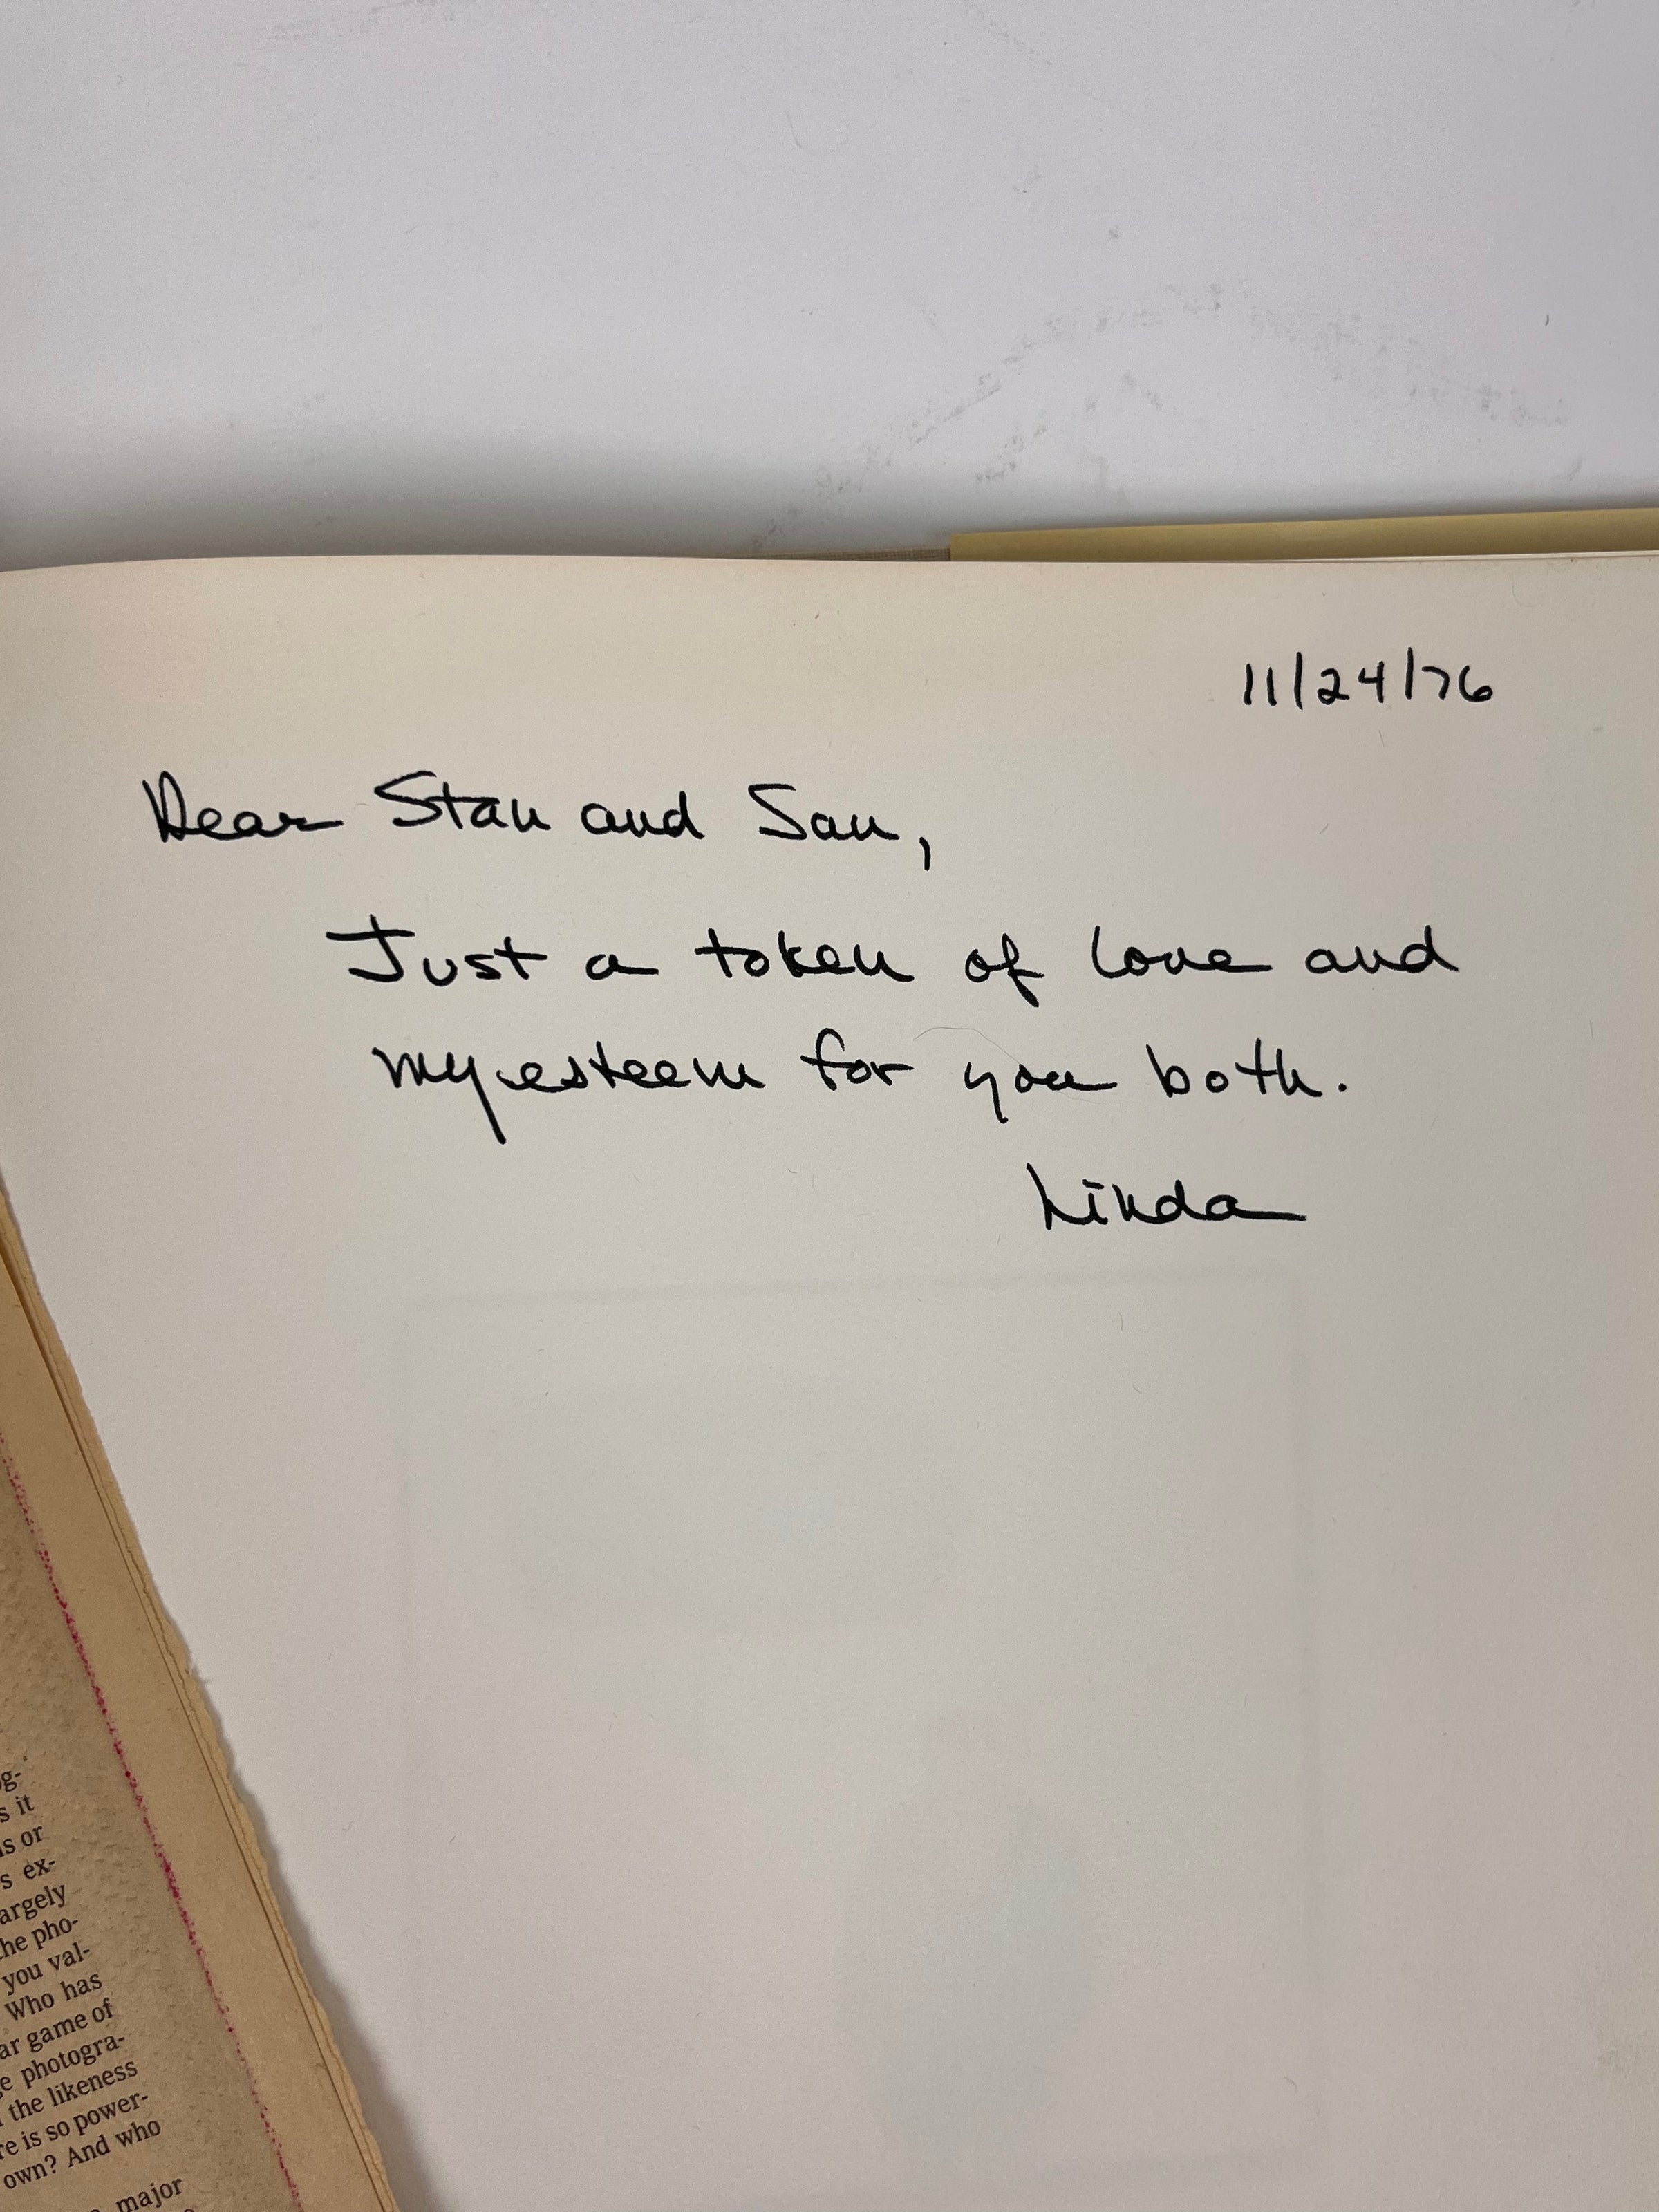 11/24/76
Dear Stan and San,
Just a token of love and
my esteem for you both.
Linda
og-
s it
ns or
s ex-
argely
the pho-
you val-
Who has
ar game of
e photogra-
the likeness
re is so power-
own? And who
major